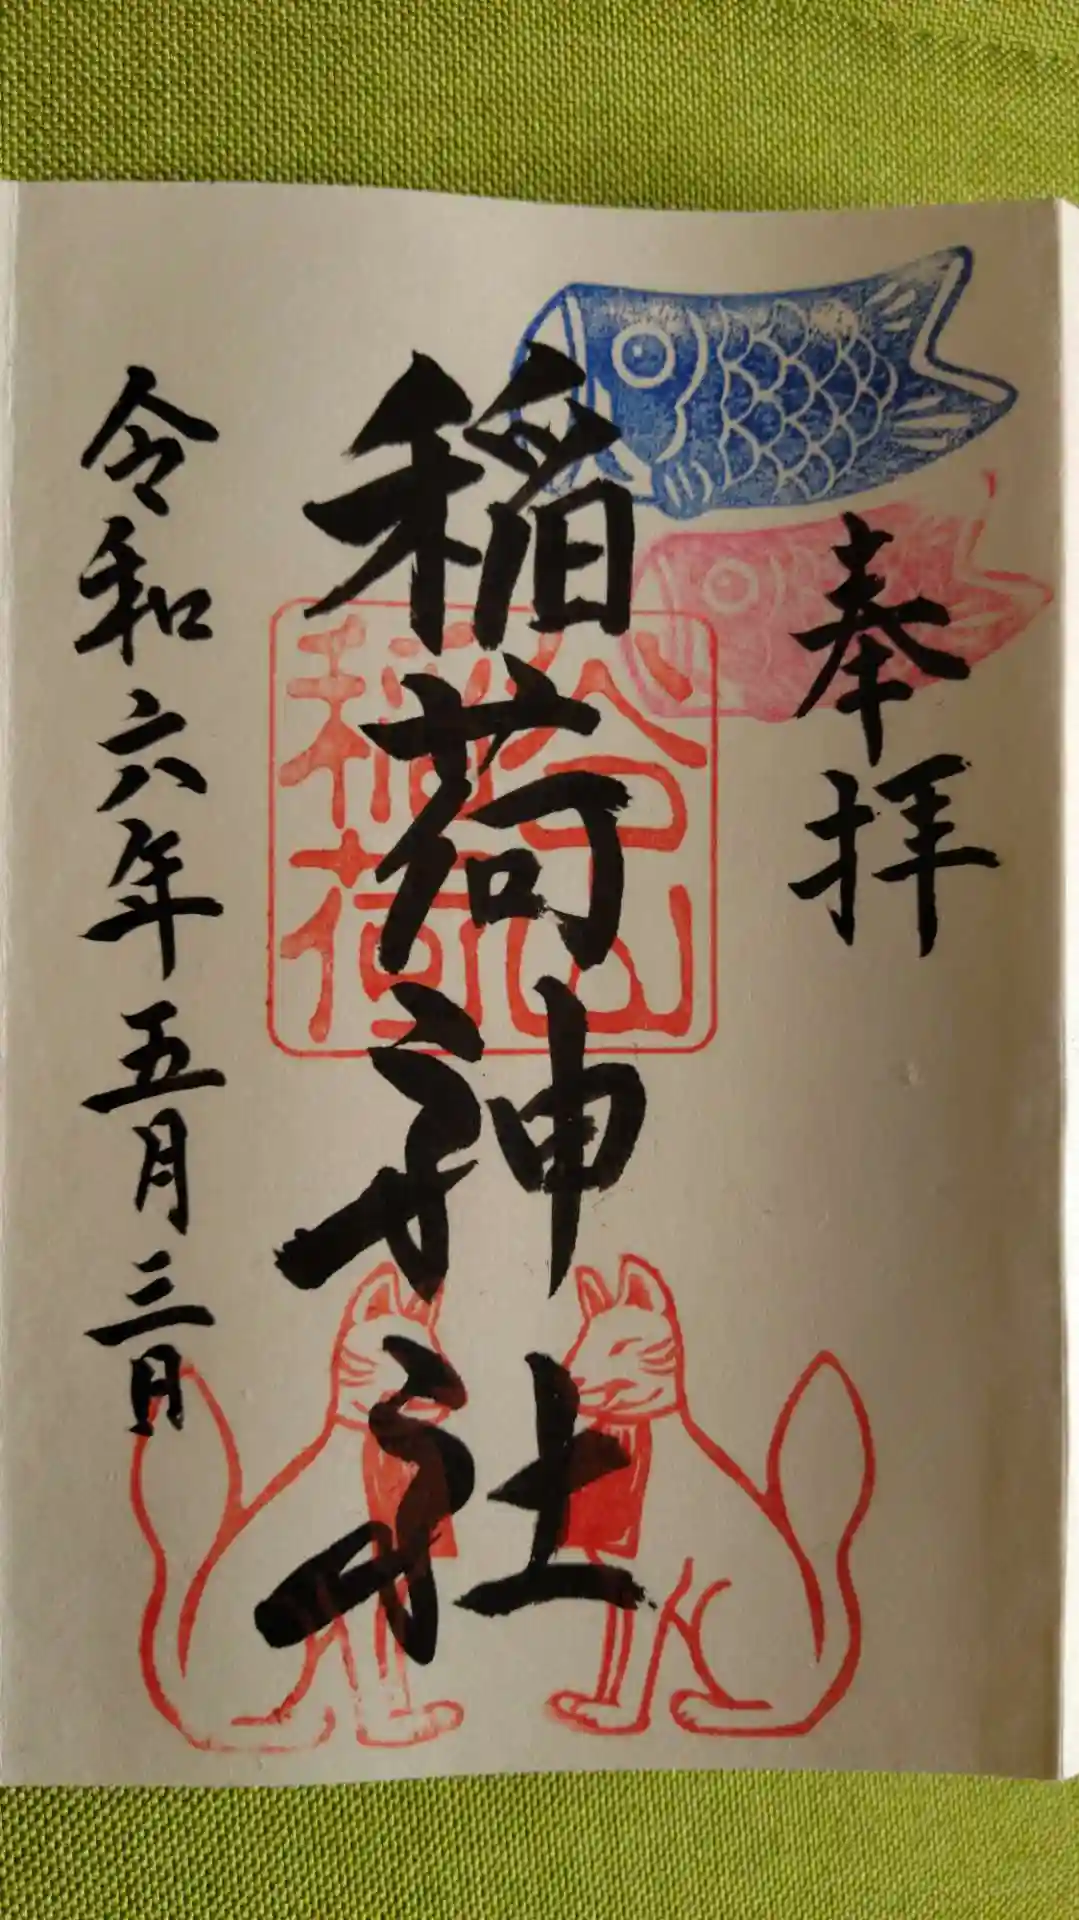 奉拝
稲荷神社
令和六年五月三日
谷山
稲荷